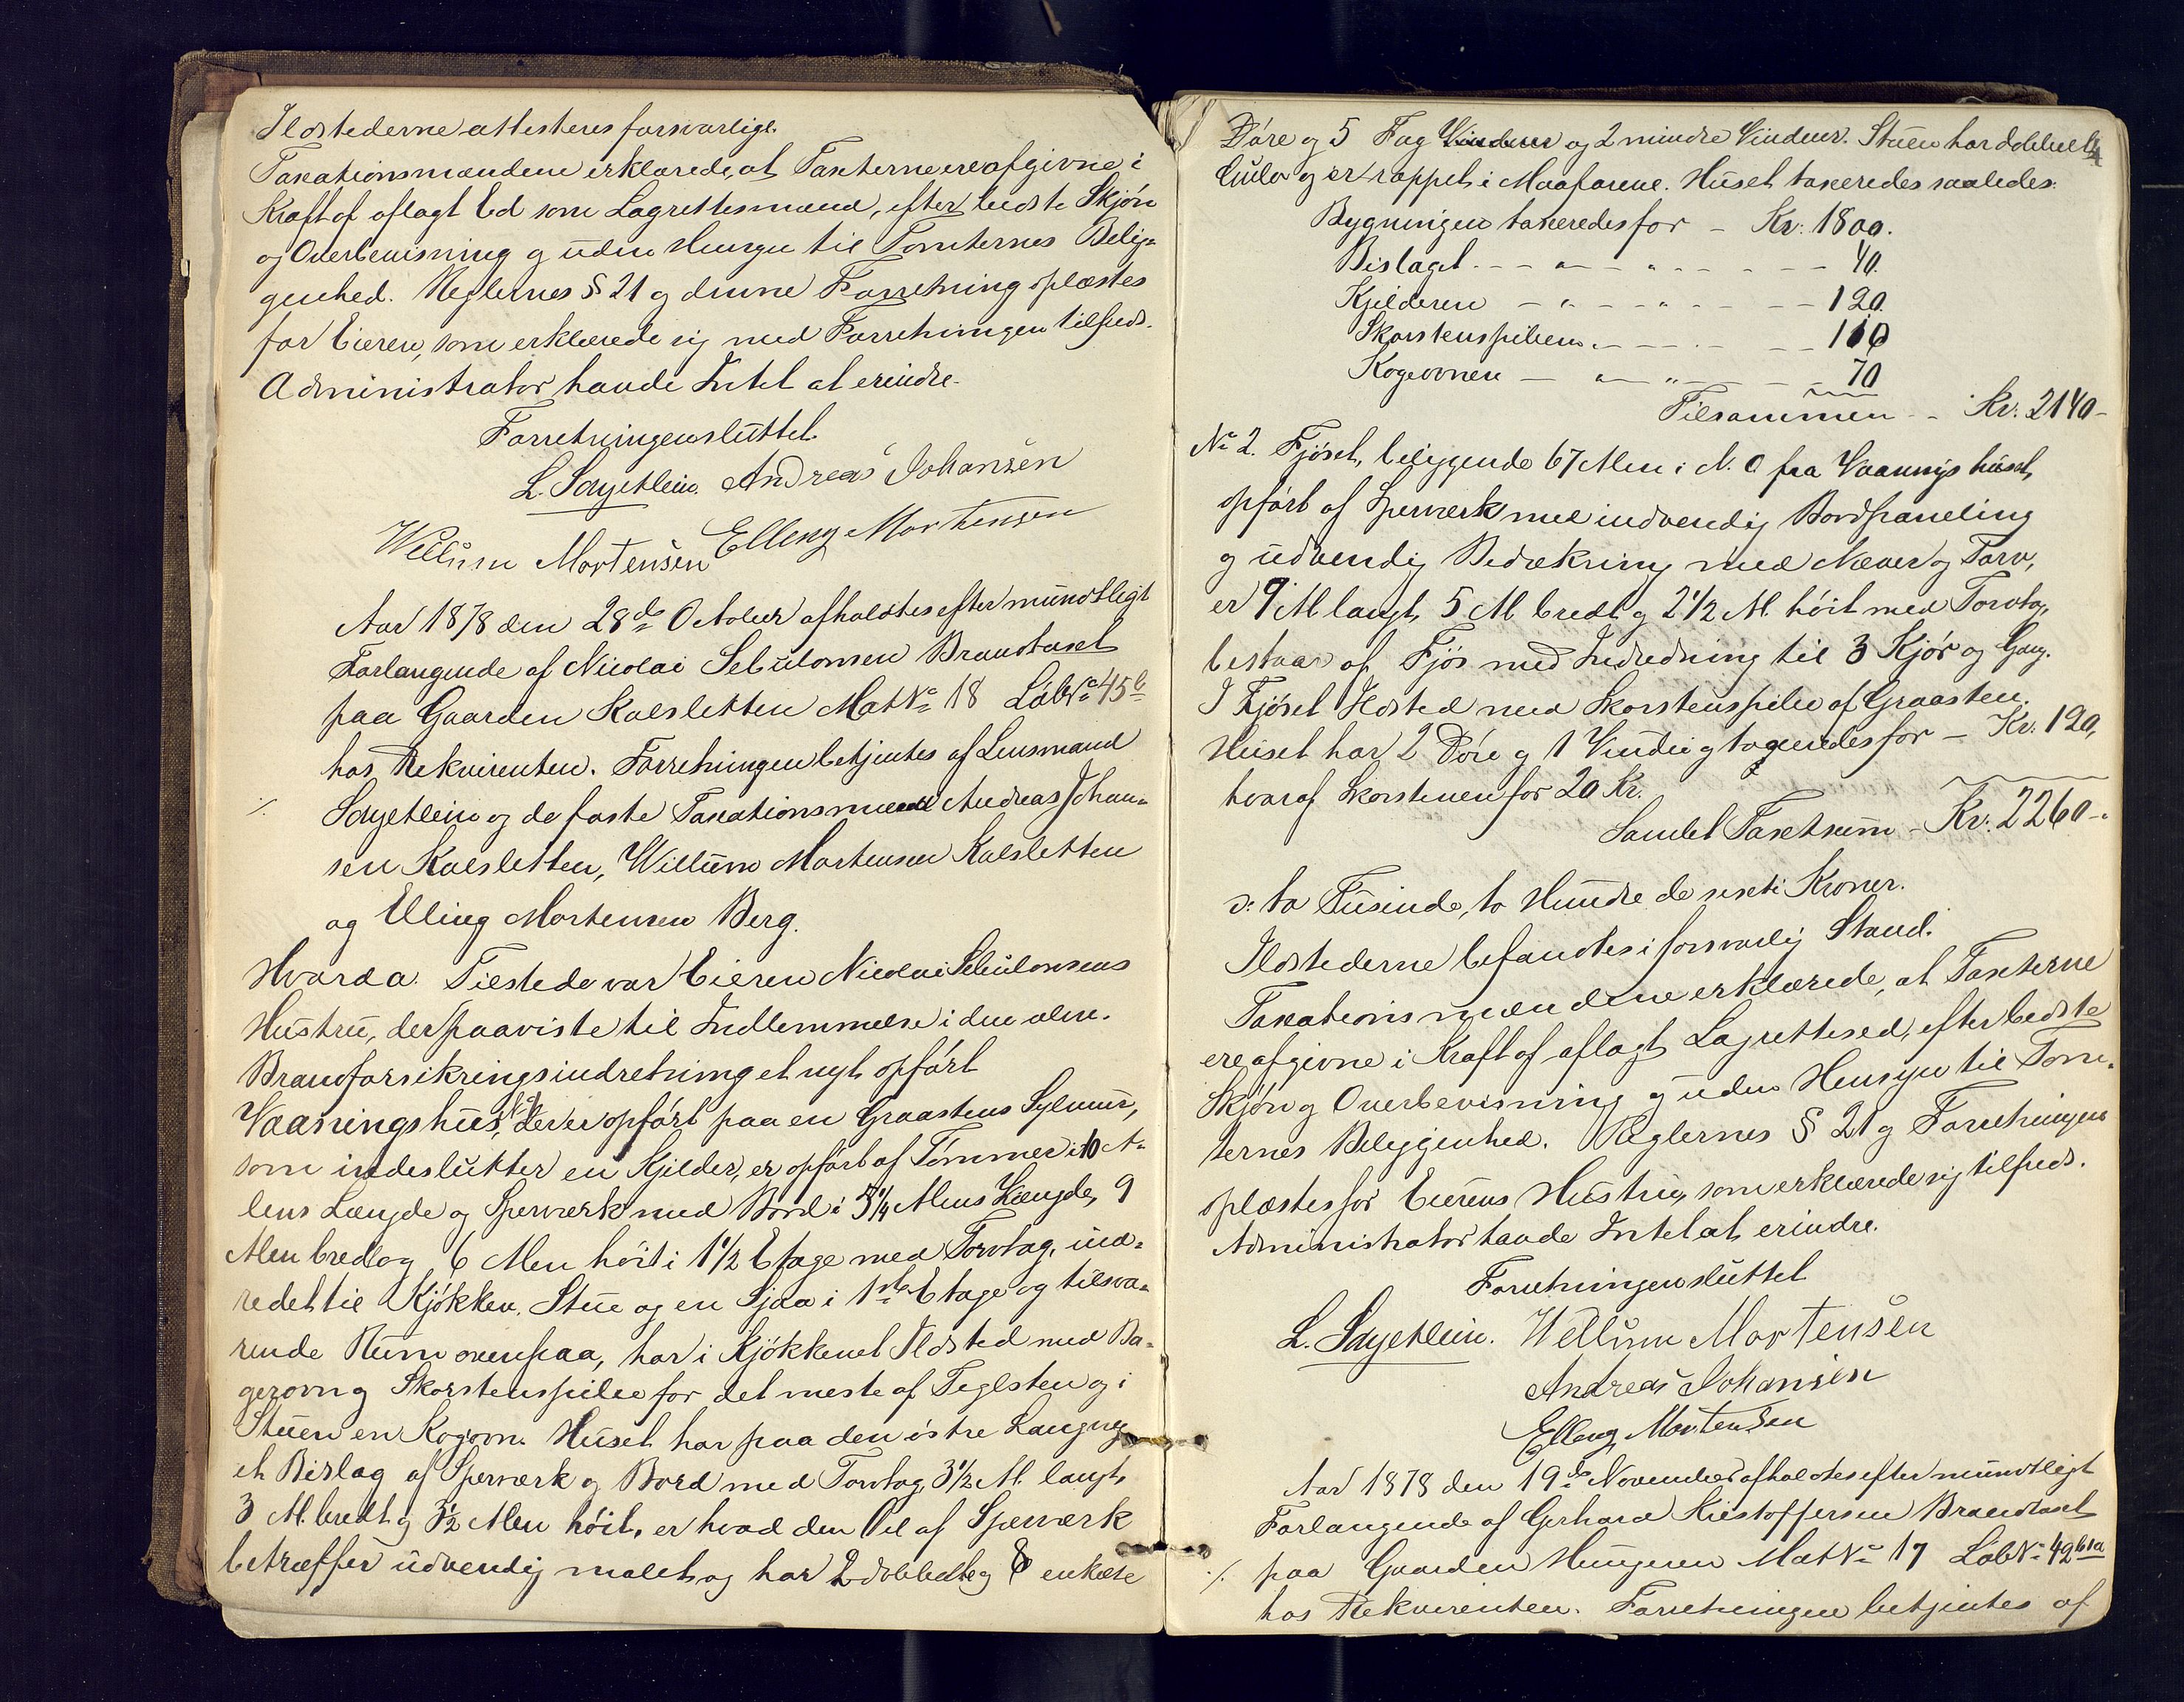 Ildstederne attesteres forsvarlige.
Taxationsmændene erklærede, at Taxterne ere afgivne i
Kraft af aflagt Ed som Lagrettesmænd, efter bedste Skjøn
og Overbevisning og uden Hensyn til Tomternes Belig-
genhed. Reglernes § 21 og denne Forretning oplæstes
for Eieren, som erklærede sig med Forretningen tilfreds.
Administrator havde Intet at erindre.
Forretningen sluttet.
L. Andreas Johansen
Wellum Mortensen Elleng Mortensen
Aar 1878 den 28de October afholdtes efter mundtligt
Forlangende af Nicolai Sebulonsen Brandtaxt
paa Gaarden Kalsletten Mat No 18 Løb No 45 b
hos Rekvirenten. Forretningen betjentes af Lensmand
./. og de faste Taxationsmænd Andreas Johan-
sen Kalsletten, Willum Mortensen Kalsletten
og Elling Mortensen Berg.
Hvarda. Tilstede var Eieren Nicolai Sebulonsens
Hustru, der paaviste til Indlemmelse i den alm.
Brandforsikringsindretning et nyt opført
Vaaningshus, der er opført paa en Graastens Sylmur,
som indeslutter en Kjelder, er opført af Tømmer i 10 A-
lens Længde og Sperværk med Bord i 5 1/4 Alens Længde, 9
Alen bred og 6 Alen høit i 1 1/2 Etage med Torvtag, ind-
redet til Kjøkken, Stue og en Sjaa i 1ste Etage og tilsva-
rende Rum ovenpaa, har i Kjøkkenet Ildsted med Ba-
gerovn og Skorstenspibe for det meste af Teglsten og i
Stuen en Kogovn. Huset har paa den østre Langvæg
et Bislag af Sperværk og Bord med Torvtag, 3 1/2 Al. langt,
3 Al. bredt og 3 1/2 Alen høit, er hvad den Del af Sperværk
betræffer udvendig malet, og har 2 dobbelte og 8 enkelte
Døre og 5 Fag Vinduer og 2 mindre Vinduer. Stuen har dobbelt
Gulv og er rappet i Maafarene. Huset taxeredes saaledes:
Bygningen taxeredes for - Kr. 1800.
Bislaget - - „ - „ - - - - 40.
Kjelderen - „ - - „ - - - 120.
Skorstenspiben - - - - - - 110
Kogeovnen - „ - „ - - 70
Tilsammen - - Kr. 2140 -
No 2. Fjøset, beliggende 67 Alen i N. O. fra Vaaningshuset,
opført af Sperværk med indvendig Bordpaneling
og udvendig Bedækning med Næver og Torv,
er 9 Al langt, 5 Al bredt og 2 1/2 Al. høit med Torvtag,
bestaar af Fjøs med Indredning til 3 Kjør og Gang.
I Fjøset Ildsted med Skorstenspibe af Graasten.
Huset har 2 Døre og 1 Vindu og taxeredes for - Kr. 120,
hvoraf Skorstenen for 20 Kr.
Samlet Taxtsum - Kr. 2260 -.
ɔ: to Tusinde, to Hundrede sexti Kroner.
Ildstederne befandtes i forsvarlig Stand.
Taxationsmændene erklærede, at Taxterne
ere afgivne i Kraft af aflagt Lagrettesed, efter bedste
Skjøn og Overbevisning og uden Hensyn til Tom-
ternes Beliggenhed. Reglernes § 21 og Forretningen
oplæstes for Eierens Hustru, som erklærede sig tilfreds.
Administrator havde Intet at erindre.
Forretningen sluttet
L. Wellum Mortensen
Andreas Johansen
Elleng Mortensen
Aar 1878 den 19de November afholdtes efter mundtligt
Forlangende af Gerhard Kristoffersen Brandtaxt
./. paa Gaarden Mat No 17 Løb No 42
hos Rekvirenten. Forretningen betjentes af